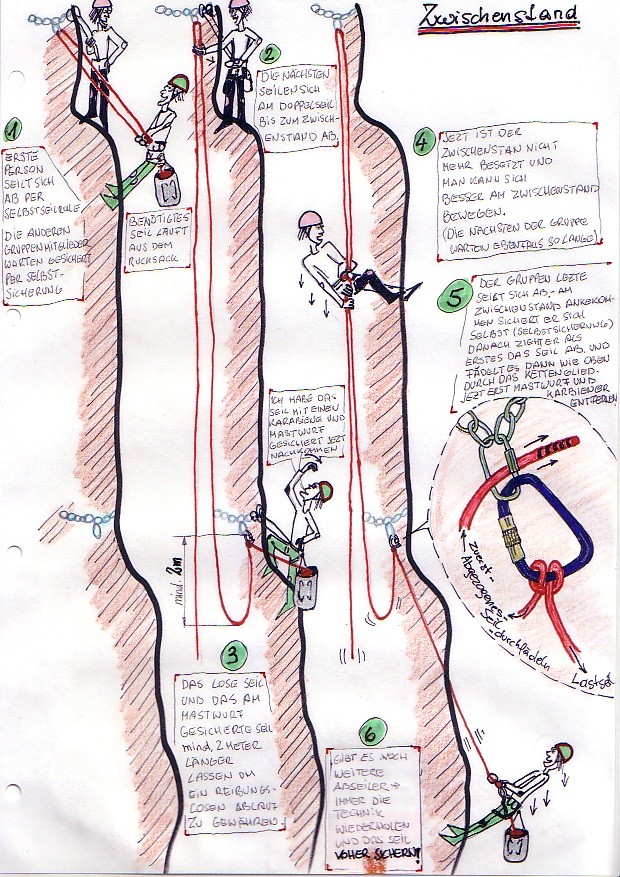 Zwischenstand
1
ERSTE
PERSON
SEILT SICH
AB PER
SELBSTSEILROLLE
DIE ANDEREN
GRUPPENMITGLIEDER
WARTEN GESICHERT
PER SELBST-
SICHERUNG
BENÖTIGTES
SEIL LÄUFT
AUS DEM
RUCKSACK
2
DIE NÄCHSTEN
SEILEN SICH
AM DOPPELSEIL
BIS ZUM ZWISCH-
ENSTAND AB.
ICH HABE DAS
SEIL MIT EINEN
KARABIENE UND
MASTWURF
GESICHERT JEZT
NACHKOMMEN
mind. 2m
3
DAS LOSE SEIL
UND DAS AM
MASTWURF
GESICHERTE SEIL
mind, 2 METER
LÄNGER
LASSEN UM
EIN REIBUNGS-
LOSEN ABLAUF
ZU GEWÄHREN.
4
JEZT IST DER
ZWISCHENSTAN NICHT
MEHR BESETZT UND
MAN KANN SICH
BESSER AM ZWISCHENSTAND
BEWEGEN.
(DIE NÄCHSTEN DER GRUPPE
WARTEN EBENFALLS SO LANGE)
5
DER GRUPPEN LEZTE
SEILT SICH AB,- AM
ZWISCHENSTAND ANGEKOM-
MEN SICHERT ER SICH
SELBST (SELBSTSICHERUNG)
DANACH ZIEHT ER ALS
ERSTES DAS SEIL AB. UND
FÄDELT ES DANN WIE OBEN
DURCH DAS KETTENGLIED.
JEZT ERST MASTWURF UND
KARBIENER
ENTFERNEN
Zuerst-
Abgezogenes
Seil
-durchfädeln
Lastseil
6
GIBT ES NOCH
WEITERE
ABSEILER →
IMMER DIE
TECHNIK
WIEDERHOLEN
UND DAS SEIL
VOHER SICHERN!